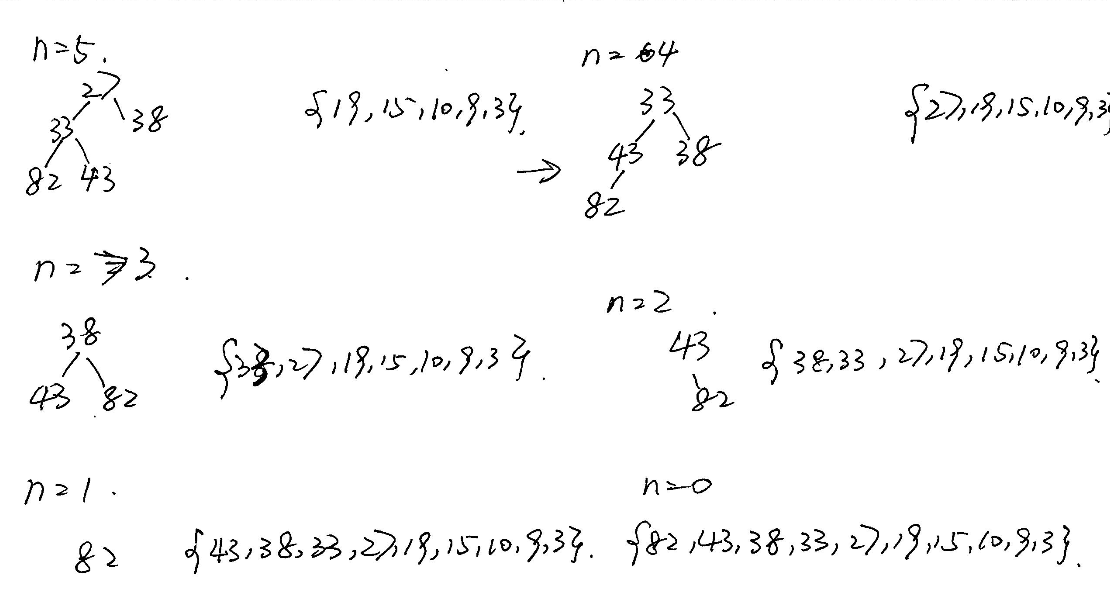 n=5.
27
33 38
82 43
{19,15,10,9,3}.
→
n=4
33
43 38
82
{27,19,15,10,9,3}
n=3.
38
43 82
{33,27,19,15,10,9,3}.
n=2.
43
82
{38,33,27,19,15,10,9,3}.
n=1.
82
{43,38,33,27,19,15,10,9,3}.
n=0
{82,43,38,33,27,19,15,10,9,3}.